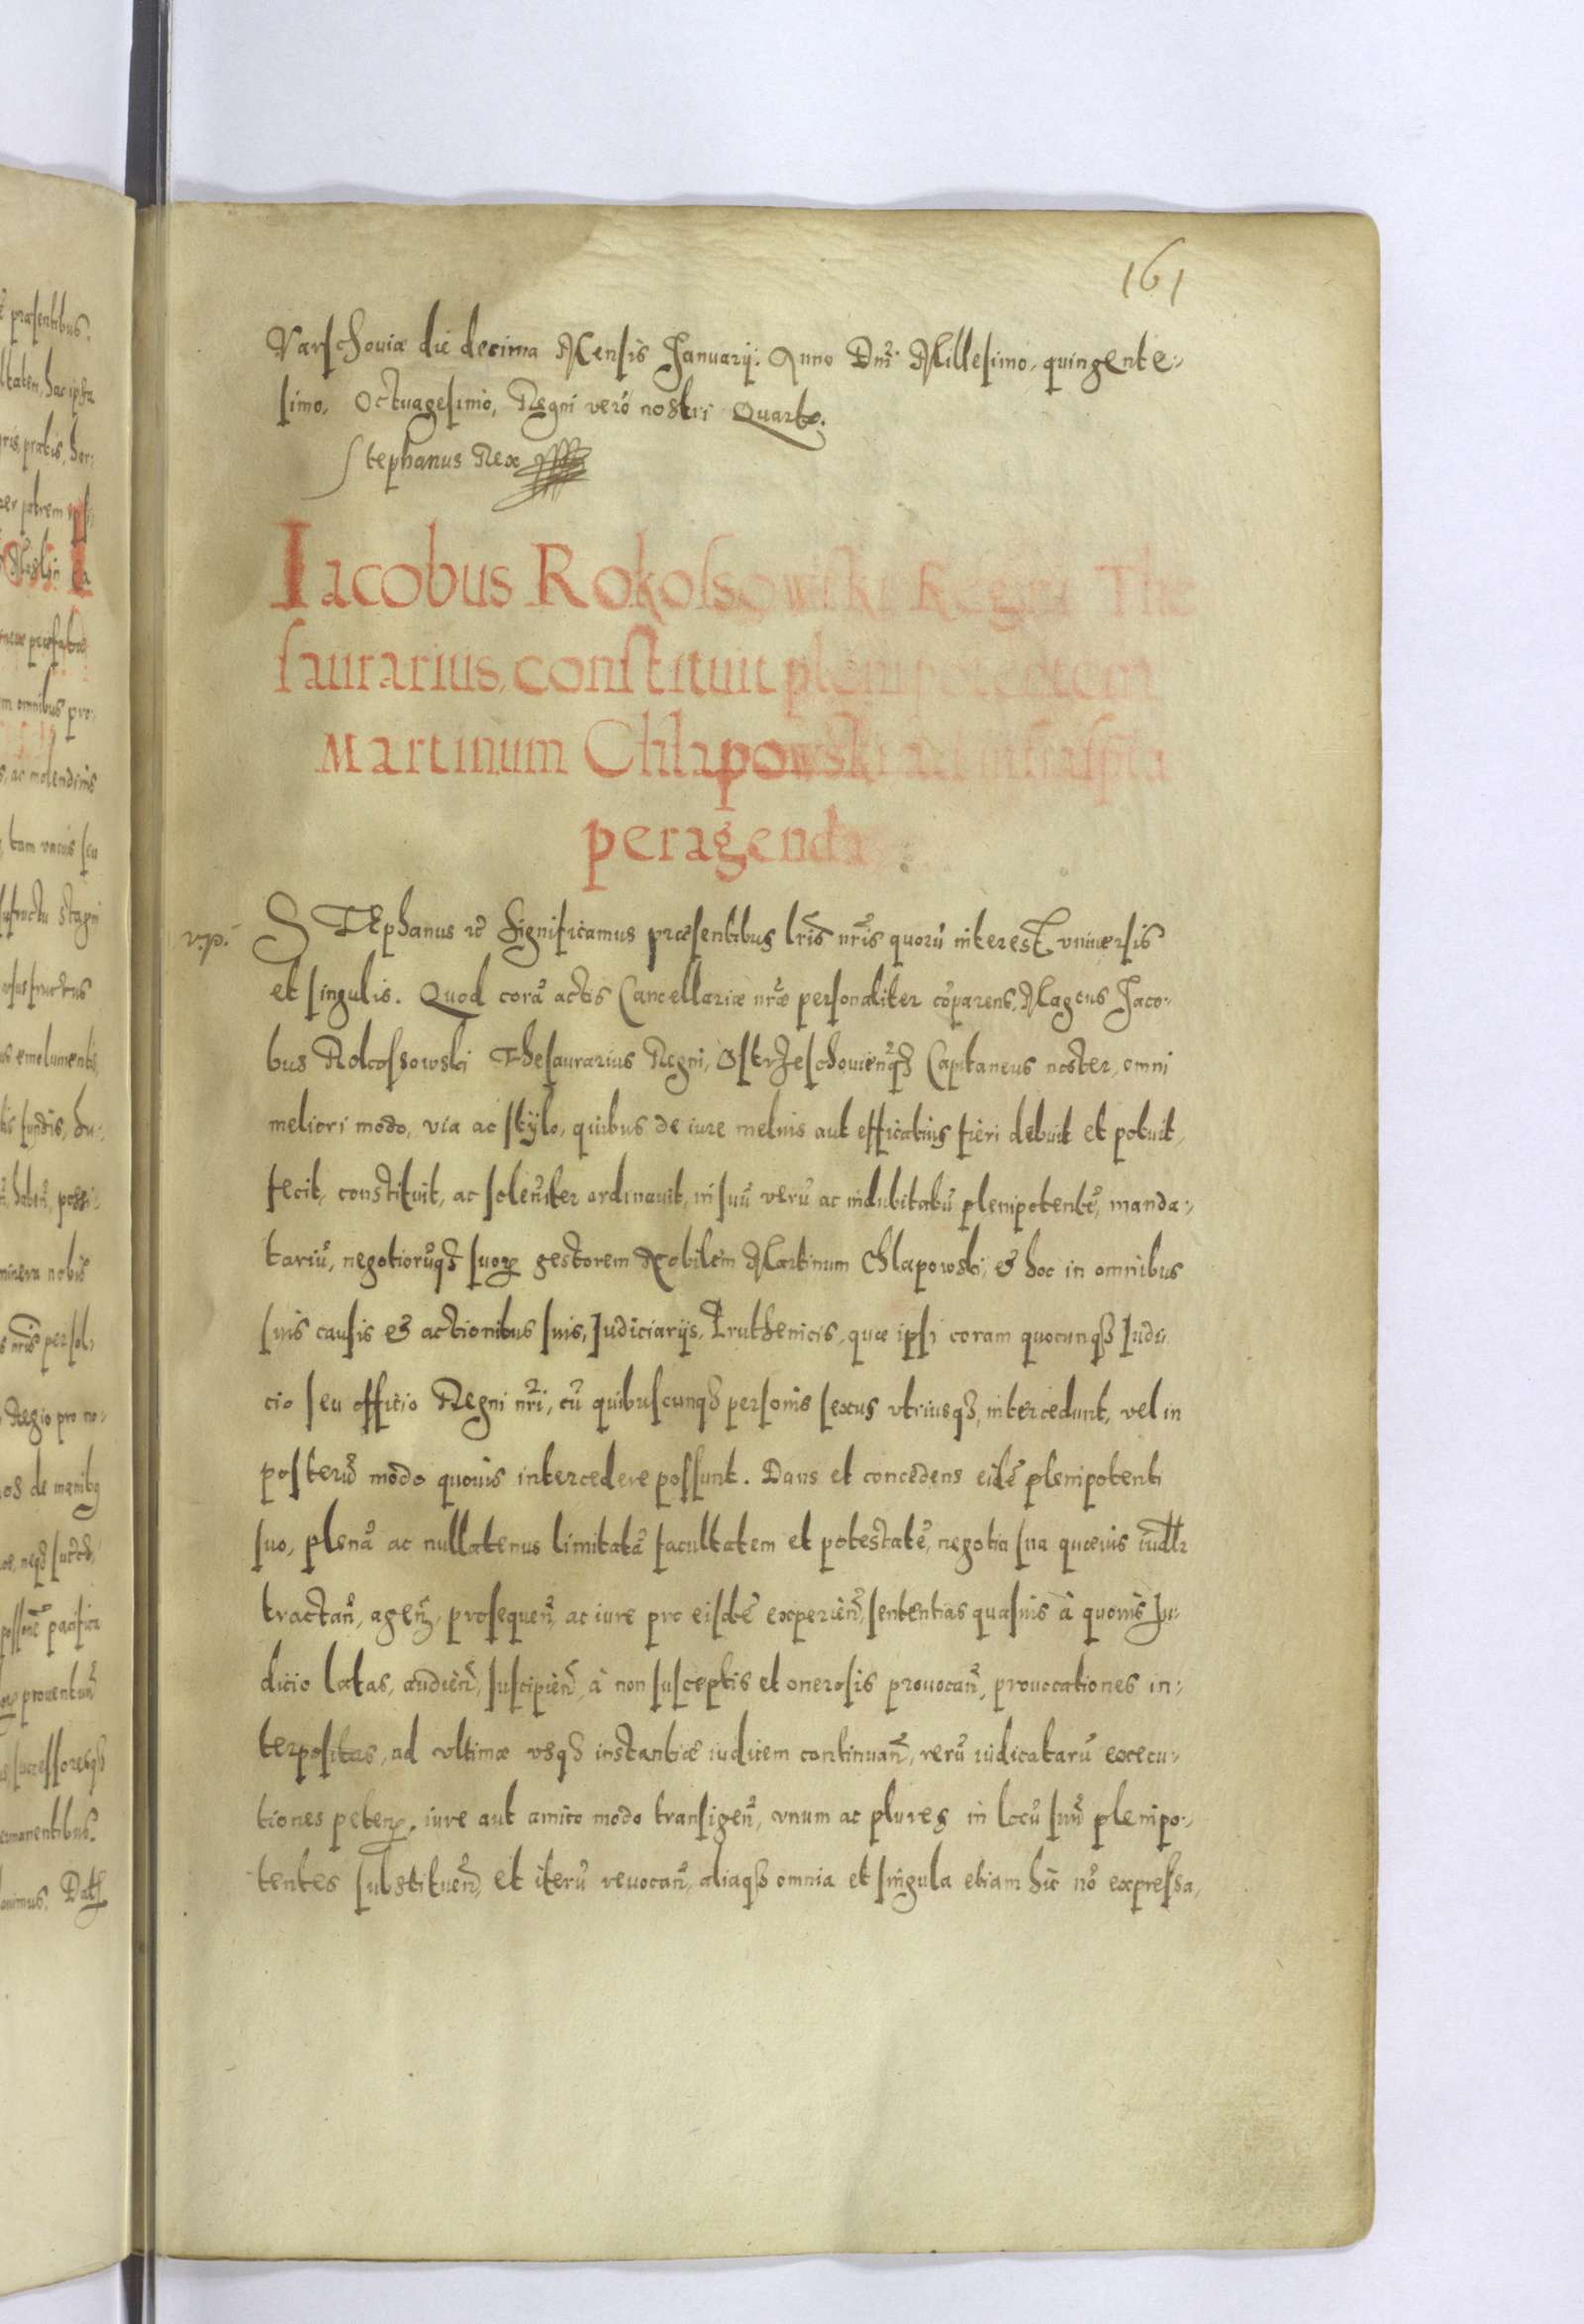 161
Varschouiæ die decima Mensis Januarij. Anno Dnĩ. Millesimo, quingente-
simo, Octuagesimo, Regni verò nostri Quarto.
Stephanus Rex
Iacobus Rokolsowski Regni The
saurarius, constituit plenipotentem
Martinum Chlapowski ad infrascripta
peragenda
v.p.
STEphanus rc̃ Significamus præsentibus lrĩs nrĩs quorũ interest vniuersis
et singulis. Quod corã actis Cancellariæ nrãe personaliter cõparens, Magcus Jaco-
bus Rokossowski Thesaurarius Regni, Ostrzeschouieñqȝ Capitaneus noster, omni
meliori modo, via ac stÿlo, quibus de iure melius aut efficatius fieri debuit et potuit,
fecit, constituit, ac soleñiter ordinauit, in suũ verũ ac indubitatũ plenipotentẽ, manda-
tariũ, negotiorũqȝ suoꝝ gestorem Nobilem Martinum Chlapowski, & hoc in omnibus
suis causis & actionibus suis, Judiciarijs, Pruthenicis, quæ ipsi coram quocunqȝ Iudi-
cio seu officio Regni nrĩ, cũ quibuscunqȝ personis sexus vtriusqȝ, intercedunt, vel in
posterũ modo quouis intercedere possunt. Dans et concedens eidẽ plenipotenti
suo, plenã ac nullatenus limitatã facultatem et potestatẽ, negotia sua quæuis iudlr
tractañ, ageñ, prosequeñ, ac iure pro eisdẽ experieñ, sententias quasuis à quouis Ju-
dicio latas, audieñ, suscipieñ, à non susceptis et onerosis prouocañ, prouocationes in-
terpositas, ad vltimæ vsqȝ instantiæ iudicem continuañ, rerũ iudicatarũ execu-
tiones peteñ, iure aut amico modo transigeñ, vnum ac plures in locũ suũ plenipo-
tentes substitueñ, et iterũ reuocañ, aliaqȝ omnia et singula etiam hîc nõ expressa,